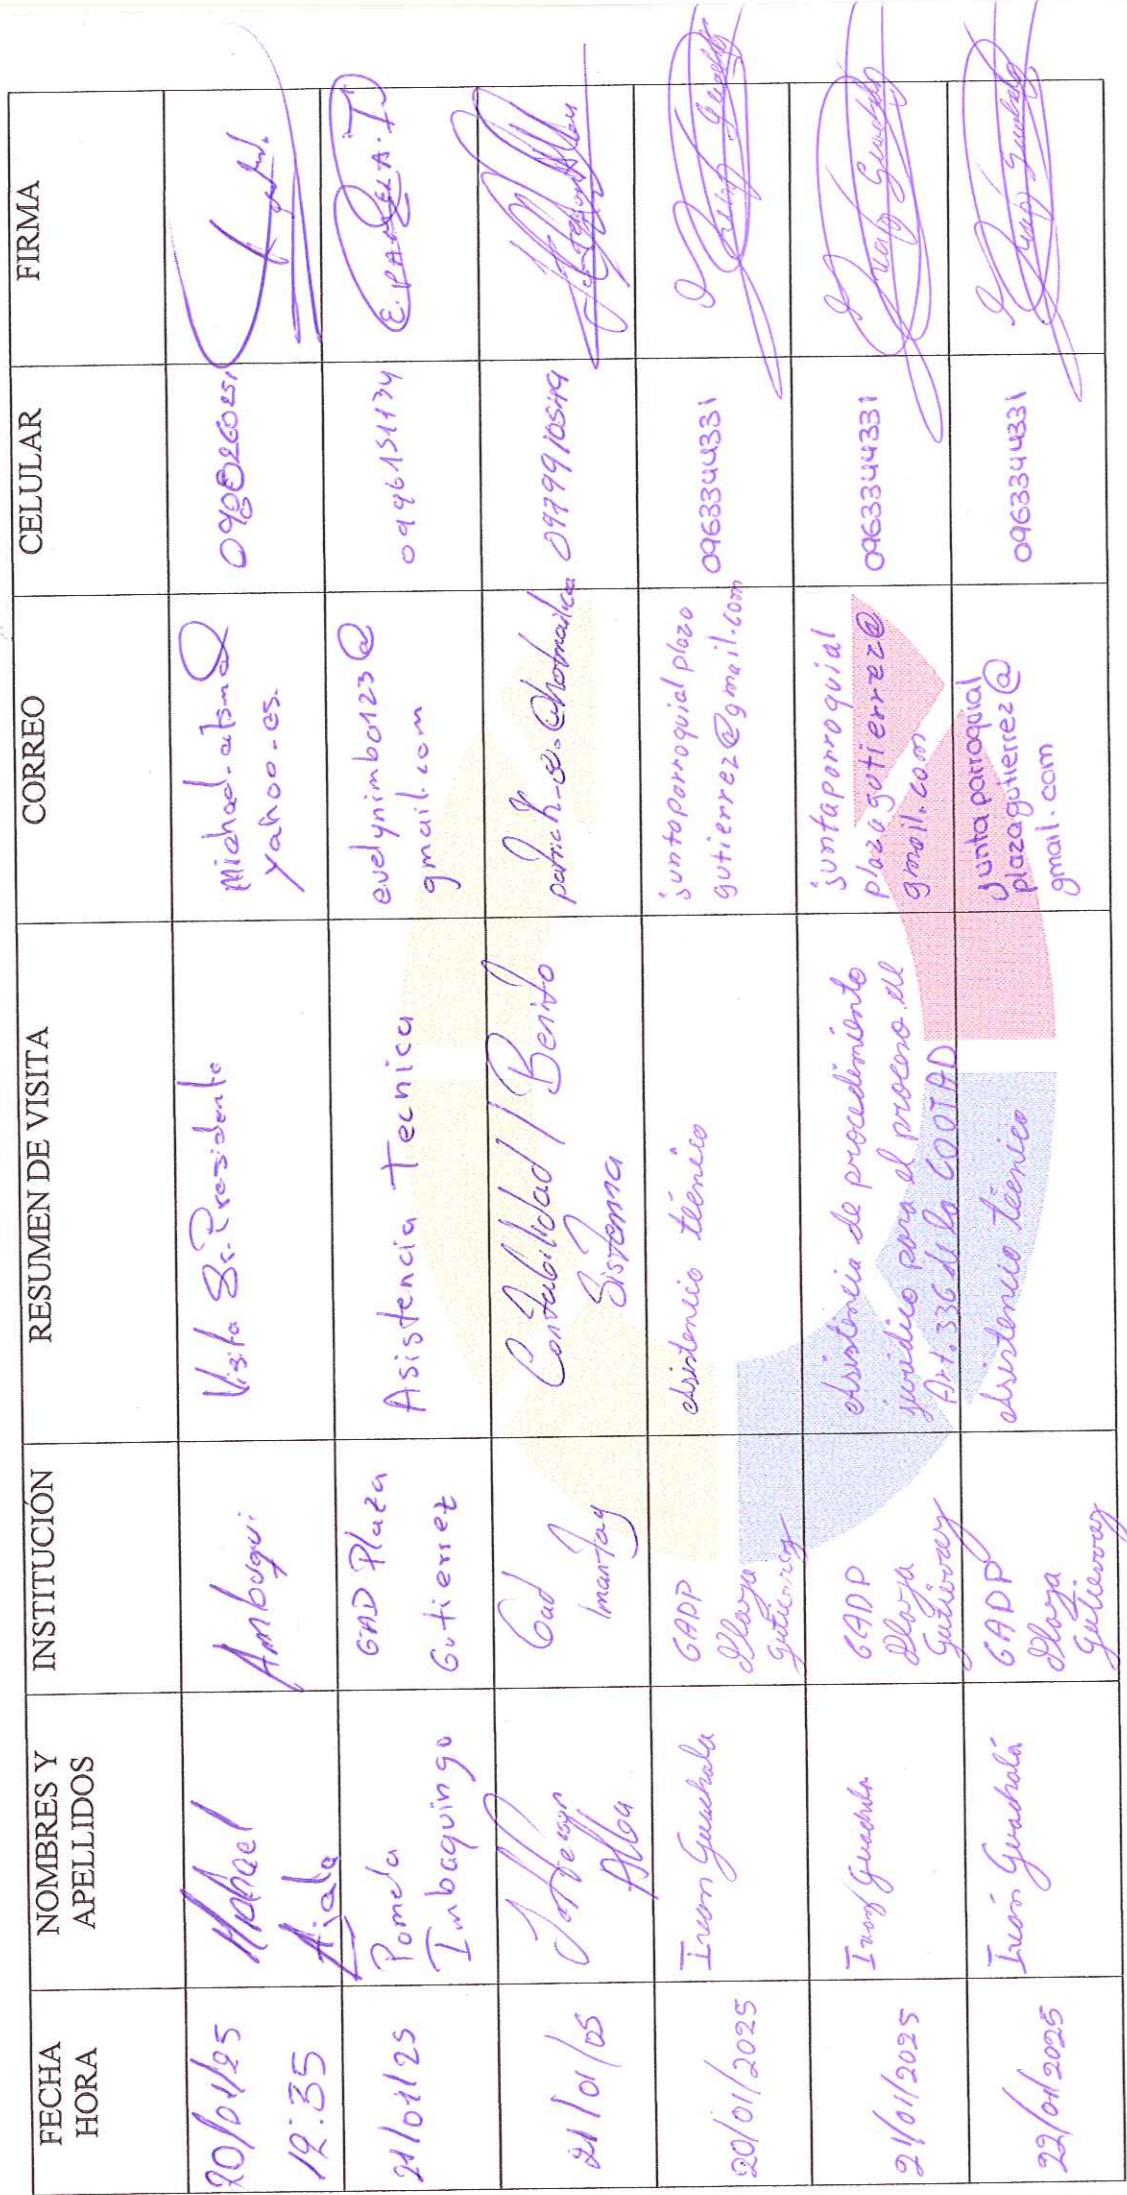 FECHA HORA
NOMBRES Y APELLIDOS
INSTITUCIÓN
RESUMEN DE VISITA
CORREO
CELULAR
FIRMA
20/01/25
12:35
Michael
Ayala
Ambuqui
Visita Sr. Presidente
yahoo.es.
21/01/25
Pamela
Imbaquingo
GAD Plaza
Gutierrez
Asistencia Tecnica
evelynimba123@
gmail.com
0996151134
E. PAMELA. I
21/01/25
Jefferson
Alba
Gad
Imantag
Contabilidad / Benito
Sistema
20/01/2025
Guachala
GADP
Plaza
Gutierrez
Asistencia técnica
juntaparroquialplaza
gutierrez@gmail.com
0963344331
21/01/2025
Guachala
GADP
Plaza
Gutierrez
Asistencia de procedimiento
jurídico para el proceso de
Art. 336 de la COOTAD
juntaparroquial
plazagutierrez@
gmail.com
0963344331
22/01/2025
Guachalá
GADP
Plaza
Gutierrez
Asistencia técnica
juntaparroquial
plazagutierrez@
gmail.com
0963344331